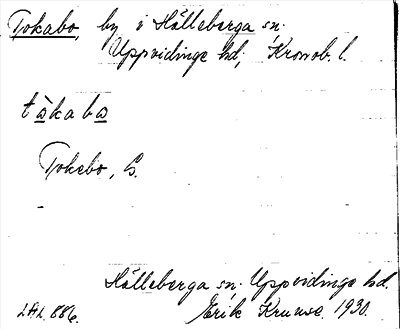 Tokabo, by i Hälleberga sn.
Uppvidinge hd, Kronob. l.
tàkaba
Tokebo, G.
-
Hälleberga sn. Uppvidinge hd.
LAL 886. Erik Kruuse. 1930.